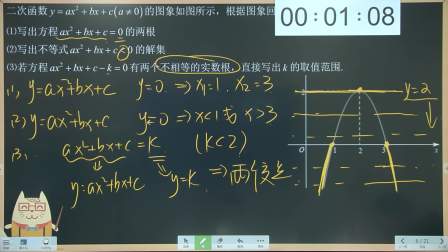 二次函数y=ax²+bx+c(a≠0)的图象如图所示，根据图象回
00:01:08
(1)写出方程ax²+bx+c=0的两根
(2)写出不等式ax²+bx+c<0的解集
(3)若方程ax²+bx+c-k=0有两个不相等的实数根，直接写出k的取值范围.
(1) y=ax²+bx+c y=0 ⇒ x₁=1. x₂=3
(2) y=ax²+bx+c y<0 ⇒ x<1或x>3
(3) ax²+bx+c=k (k<2)
y=ax²+bx+c y=k ⇒ 两个交点
y=2
2
1 2 3